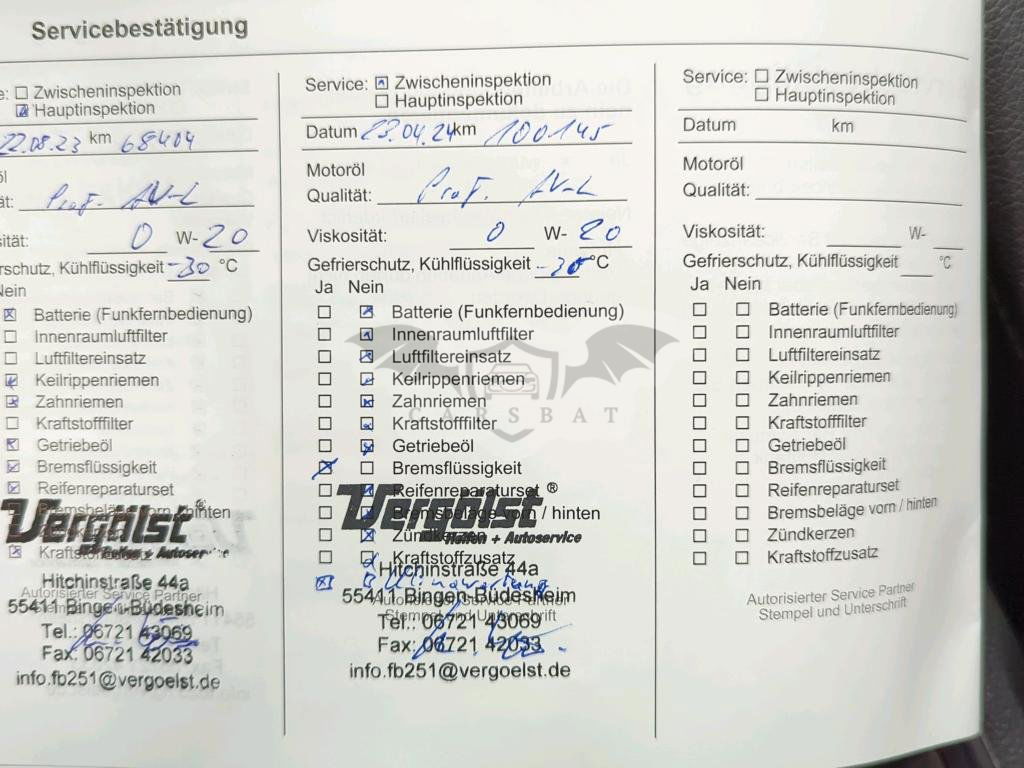 Servicebestätigung
Zwischeninspektion
Hauptinspektion
22.08.23 km 68404
Prof. AV-L
0 W-20
Kühlflüssigkeit -30 °C
Nein
Batterie (Funkfernbedienung)
Innenraumluftfilter
Luftfiltereinsatz
Keilrippenriemen
Zahnriemen
Kraftstofffilter
Getriebeöl
Bremsflüssigkeit
Reifenreparaturset
Bremsbeläge vorn / hinten
Vergölst ®
Reifen + Autoservice
Hitchinstraße 44a
Autorisierter Service Partner
55411 Bingen-Büdesheim
Tel.: 06721 43069
Fax: 06721 42033
info.fb251@vergoelst.de
Service: Zwischeninspektion
Hauptinspektion
Datum 23.04.24 km 100145
Motoröl
Qualität: Prof. AV-L
Viskosität: 0 W- 20
Gefrierschutz, Kühlflüssigkeit -30 °C
Ja Nein
Batterie (Funkfernbedienung)
Innenraumluftfilter
Luftfiltereinsatz
Keilrippenriemen
Zahnriemen
Kraftstofffilter
Getriebeöl
Bremsflüssigkeit
Reifenreparaturset
Bremsbeläge vorn / hinten
Zündkerzen
Kraftstoffzusatz
Vergölst ®
Reifen + Autoservice
Hitchinstraße 44a
Klimawartung
55411 Bingen-Büdesheim
Autorisierter Service Partner
Stempel und Unterschrift
Tel.: 06721 43069
Fax: 06721 42033
info.fb251@vergoelst.de
CARSBAT
Service: Zwischeninspektion
Hauptinspektion
Datum km
Motoröl
Qualität:
Viskosität: W-
Gefrierschutz, Kühlflüssigkeit °C
Ja Nein
Batterie (Funkfernbedienung)
Innenraumluftfilter
Luftfiltereinsatz
Keilrippenriemen
Zahnriemen
Kraftstofffilter
Getriebeöl
Bremsflüssigkeit
Reifenreparaturset
Bremsbeläge vorn / hinten
Zündkerzen
Kraftstoffzusatz
Autorisierter Service Partner
Stempel und Unterschrift